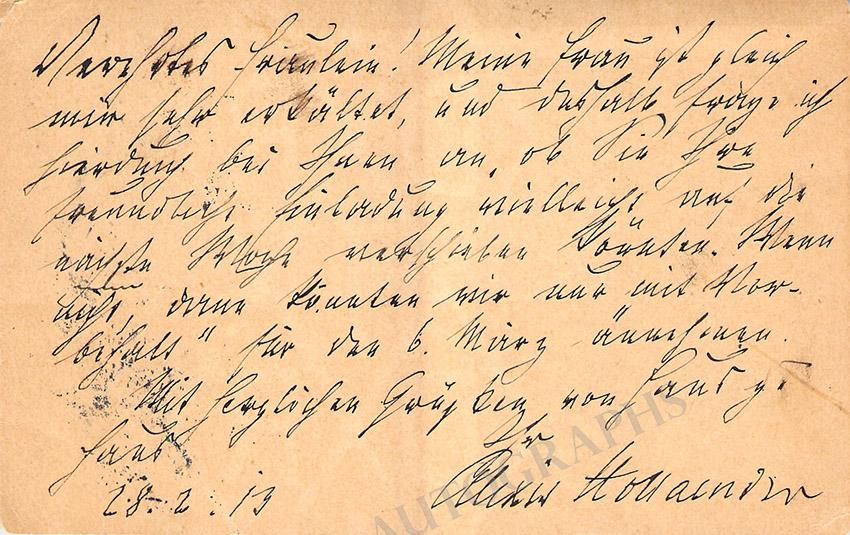 Verehrtes Fräulein! Meine Frau ist gleich
mir sehr erkältet, und deshalb frage ich
hierdurch bei Ihnen an, ob Sie Ihre
freundliche Einladung vielleicht auf die
nächste Woche verschieben könnten. Wenn
nicht, dann könnten wir nur mit „Vor-
behalt" für den 6. März annehmen.
Mit herzlichen Grüßen von Haus zu
Haus
Ihr
28.2.13 Alexis Hollaender
AUTOGRAPHS